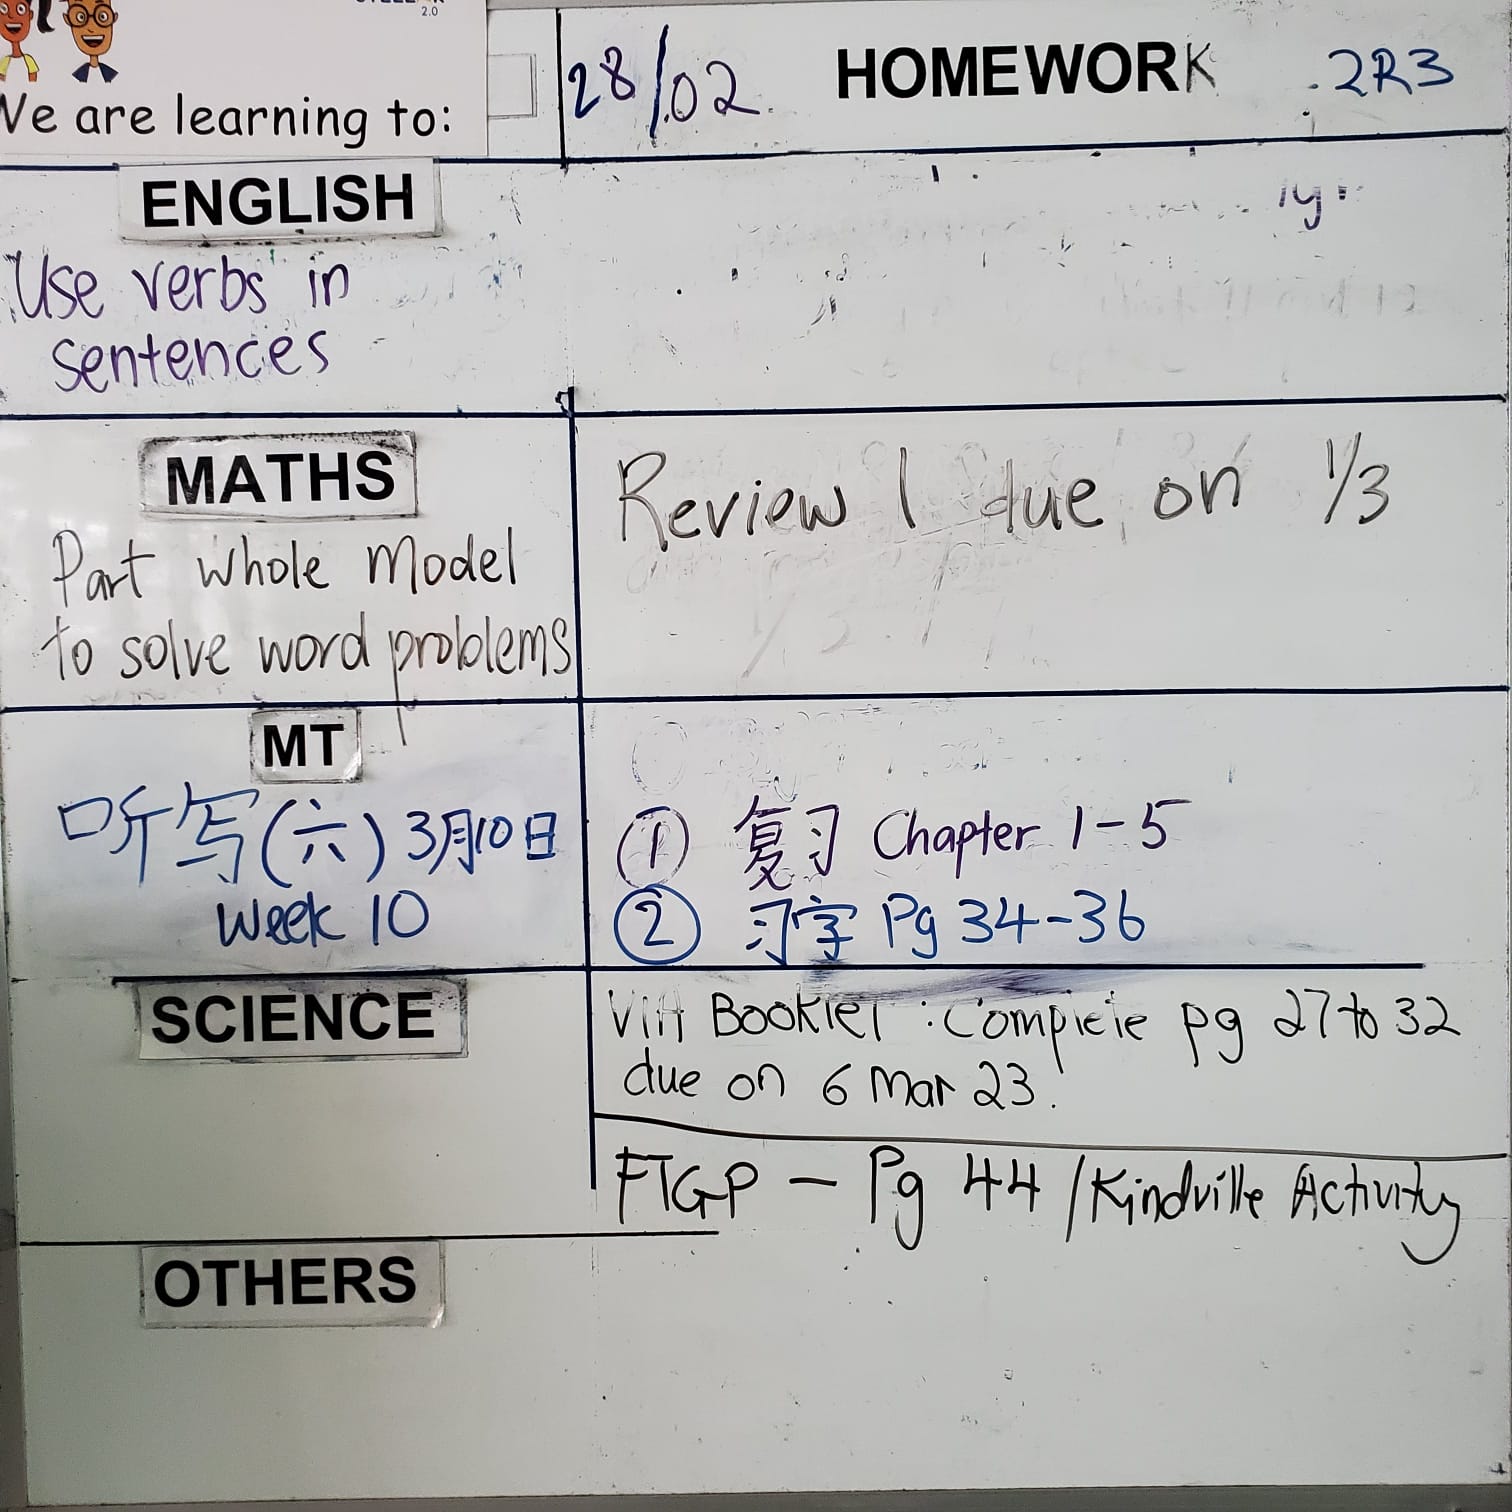 2.0
We are learning to:
28/02 HOMEWORK 2R3
ENGLISH
Use verbs in
sentences
MATHS
Part whole model
to solve word problems
Review 1 due on 1/3
MT
听写(六) 3月10日
Week 10
① 复习 Chapter 1-5
② 习字 Pg 34-36
SCIENCE
Booklet : Complete pg 27 to 32
due on 6 Mar 23.
FTGP - Pg 44 / Kindville Activity
OTHERS